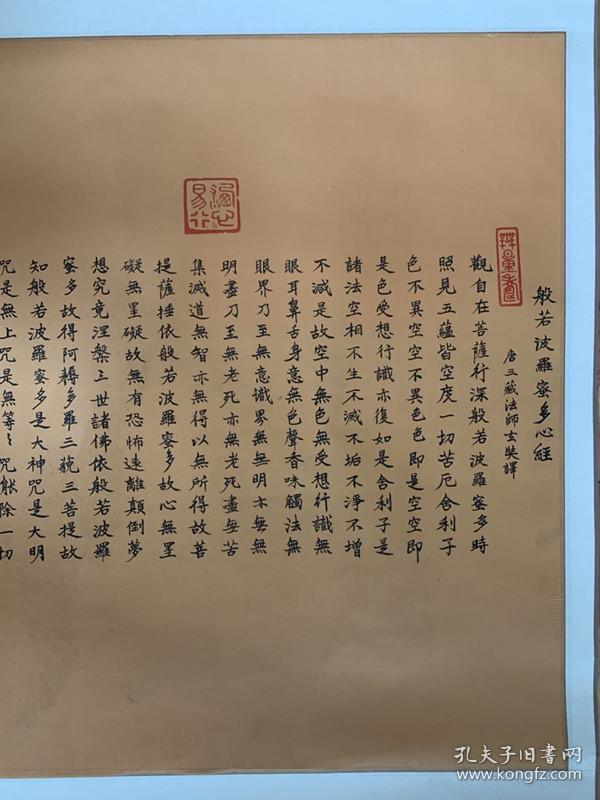 般若波羅蜜多心経
唐三藏法師玄奘譯
觀自在菩薩行深般若波羅蜜多時
照見五蘊皆空度一切苦厄舍利子
色不異空空不異色色即是空空即
是色受想行識亦復如是舍利子是
諸法空相不生不滅不垢不淨不增
不減是故空中無色無受想行識無
眼耳鼻舌身意無色聲香味觸法無
眼界乃至無意識界無無明亦無無
明盡乃至無老死亦無老死盡無苦
集滅道無智亦無得以無所得故菩
提薩埵依般若波羅蜜多故心無罣
礙無罣礙故無有恐怖遠離顛倒夢
想究竟涅槃三世諸佛依般若波羅
蜜多故得阿耨多羅三藐三菩提故
知般若波羅蜜多是大神咒是大明
咒是無上咒是無等〻咒能除一切
孔夫子旧书网
www.kongfz.com